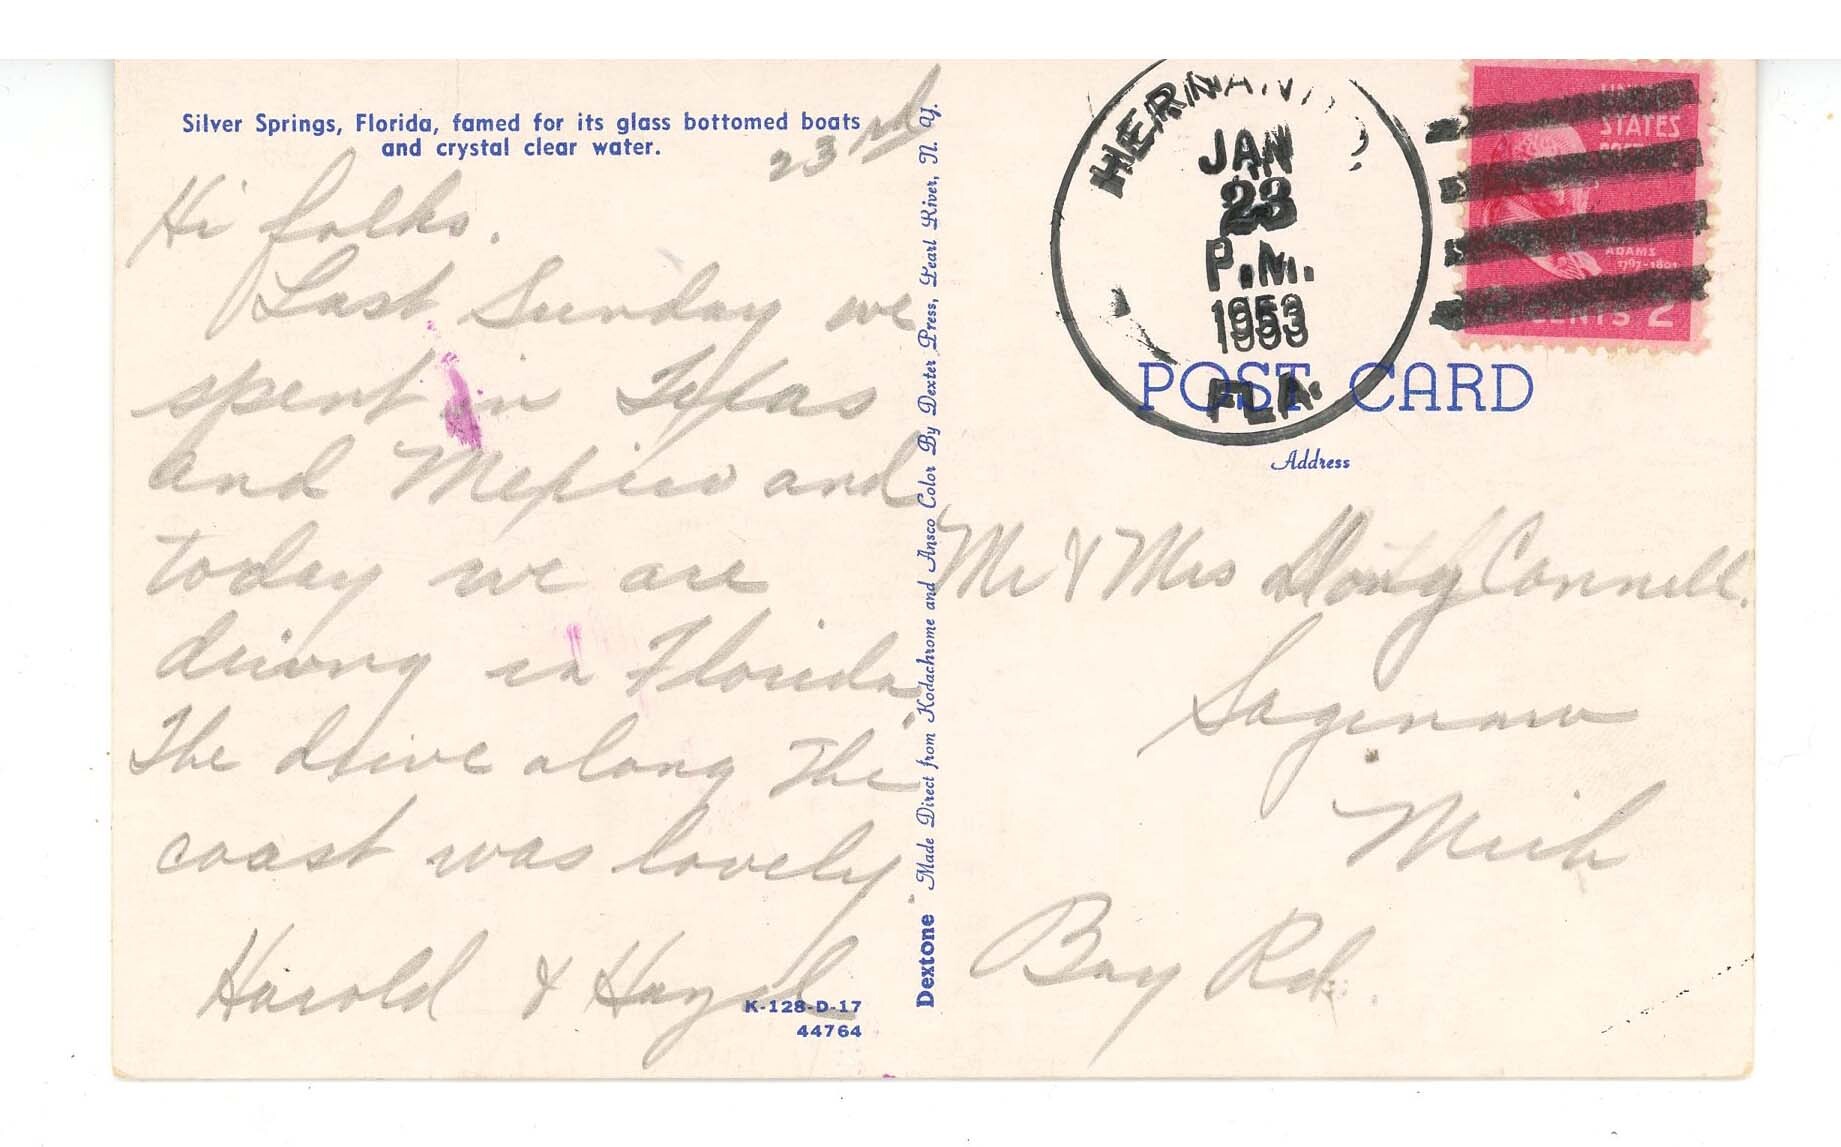 Silver Springs, Florida, famed for its glass bottomed boats
and crystal clear water.
23rd
Hi folks.
Last Sunday we
spent in Texas
and Mexico and
today we are
driving in Florida,
The drive along the
coast was lovely
Harold & Hazel
K-128-D-17
44764
Dextone Made Direct from Kodachrome and Ansco Color By Dexter Press, Pearl River, N. Y.
JAN
23
P.M.
1953
FLA.
STATES
ADAMS
1797-1801
CENTS 2
POST CARD
Address
Mr & Mrs Doug Connell.
Saginaw
Mich
Bay Rd.